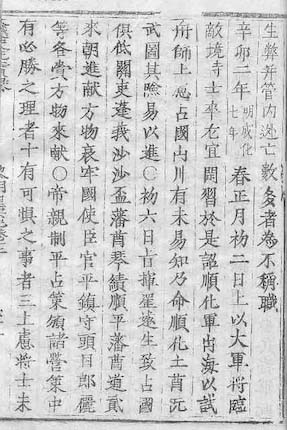 生弊并管内逃亡數多者為不稱職
辛卯二年明成化七年春正月初二日上以大軍將臨
敵境士卒宜閑習於是詔順化軍出海以試
舟師上恐占國山川有未易知乃命順化土酋
武圖其險易以進○初六日占生致占國
俱低關吏蓬我沙沙盃藩酋琴績順平藩酋道貳
來朝進獻方物哀牢國使臣官平鎮守頭目郎儷
等各賚方物來献○帝親制平占策頒諸營策中
有必勝之理者十有可惧之事者三上慮將士未